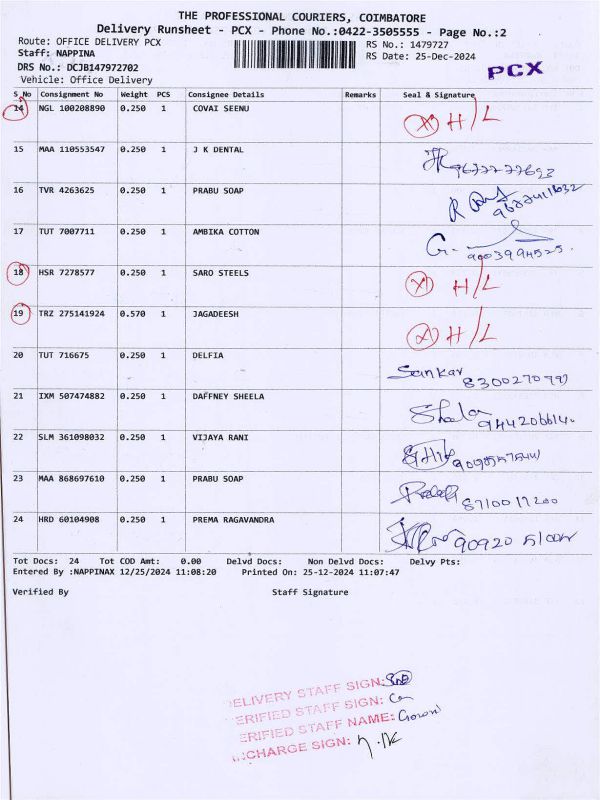 THE PROFESSIONAL COURIERS, COIMBATORE
Delivery Runsheet - PCX - Phone No.:0422-3505555 - Page No.:2
Route: OFFICE DELIVERY PCX RS No.: 1479727
Staff: NAPPINA RS Date: 25-Dec-2024
DRS No.: DCJB147972702 PCX
Vehicle: Office Delivery
S_No Consignment No Weight PCS Consignee Details Remarks Seal & Signature
14 NGL 100208890 0.250 1 COVAI SEENU X H/L
15 MAA 110553547 0.250 1 J K DENTAL
16 TVR 4263625 0.250 1 PRABU SOAP
17 TUT 7007711 0.250 1 AMBIKA COTTON 9003994525
18 HSR 7278577 0.250 1 SARO STEELS X H/L
19 TRZ 275141924 0.570 1 JAGADEESH X H/L
20 TUT 716675 0.250 1 DELFIA Sankar
21 IXM 507474882 0.250 1 DAFFNEY SHEELA Sheela
22 SLM 361098032 0.250 1 VIJAYA RANI
23 MAA 868697610 0.250 1 PRABU SOAP 8710017200
24 HRD 60104908 0.250 1 PREMA RAGAVANDRA
Tot Docs: 24 Tot COD Amt: 0.00 Delvd Docs: Non Delvd Docs: Delvy Pts:
Entered By :NAPPINAX 12/25/2024 11:08:20 Printed On: 25-12-2024 11:07:47
Verified By Staff Signature
DELIVERY STAFF SIGN:
VERIFIED STAFF SIGN:
VERIFIED STAFF NAME:
INCHARGE SIGN: